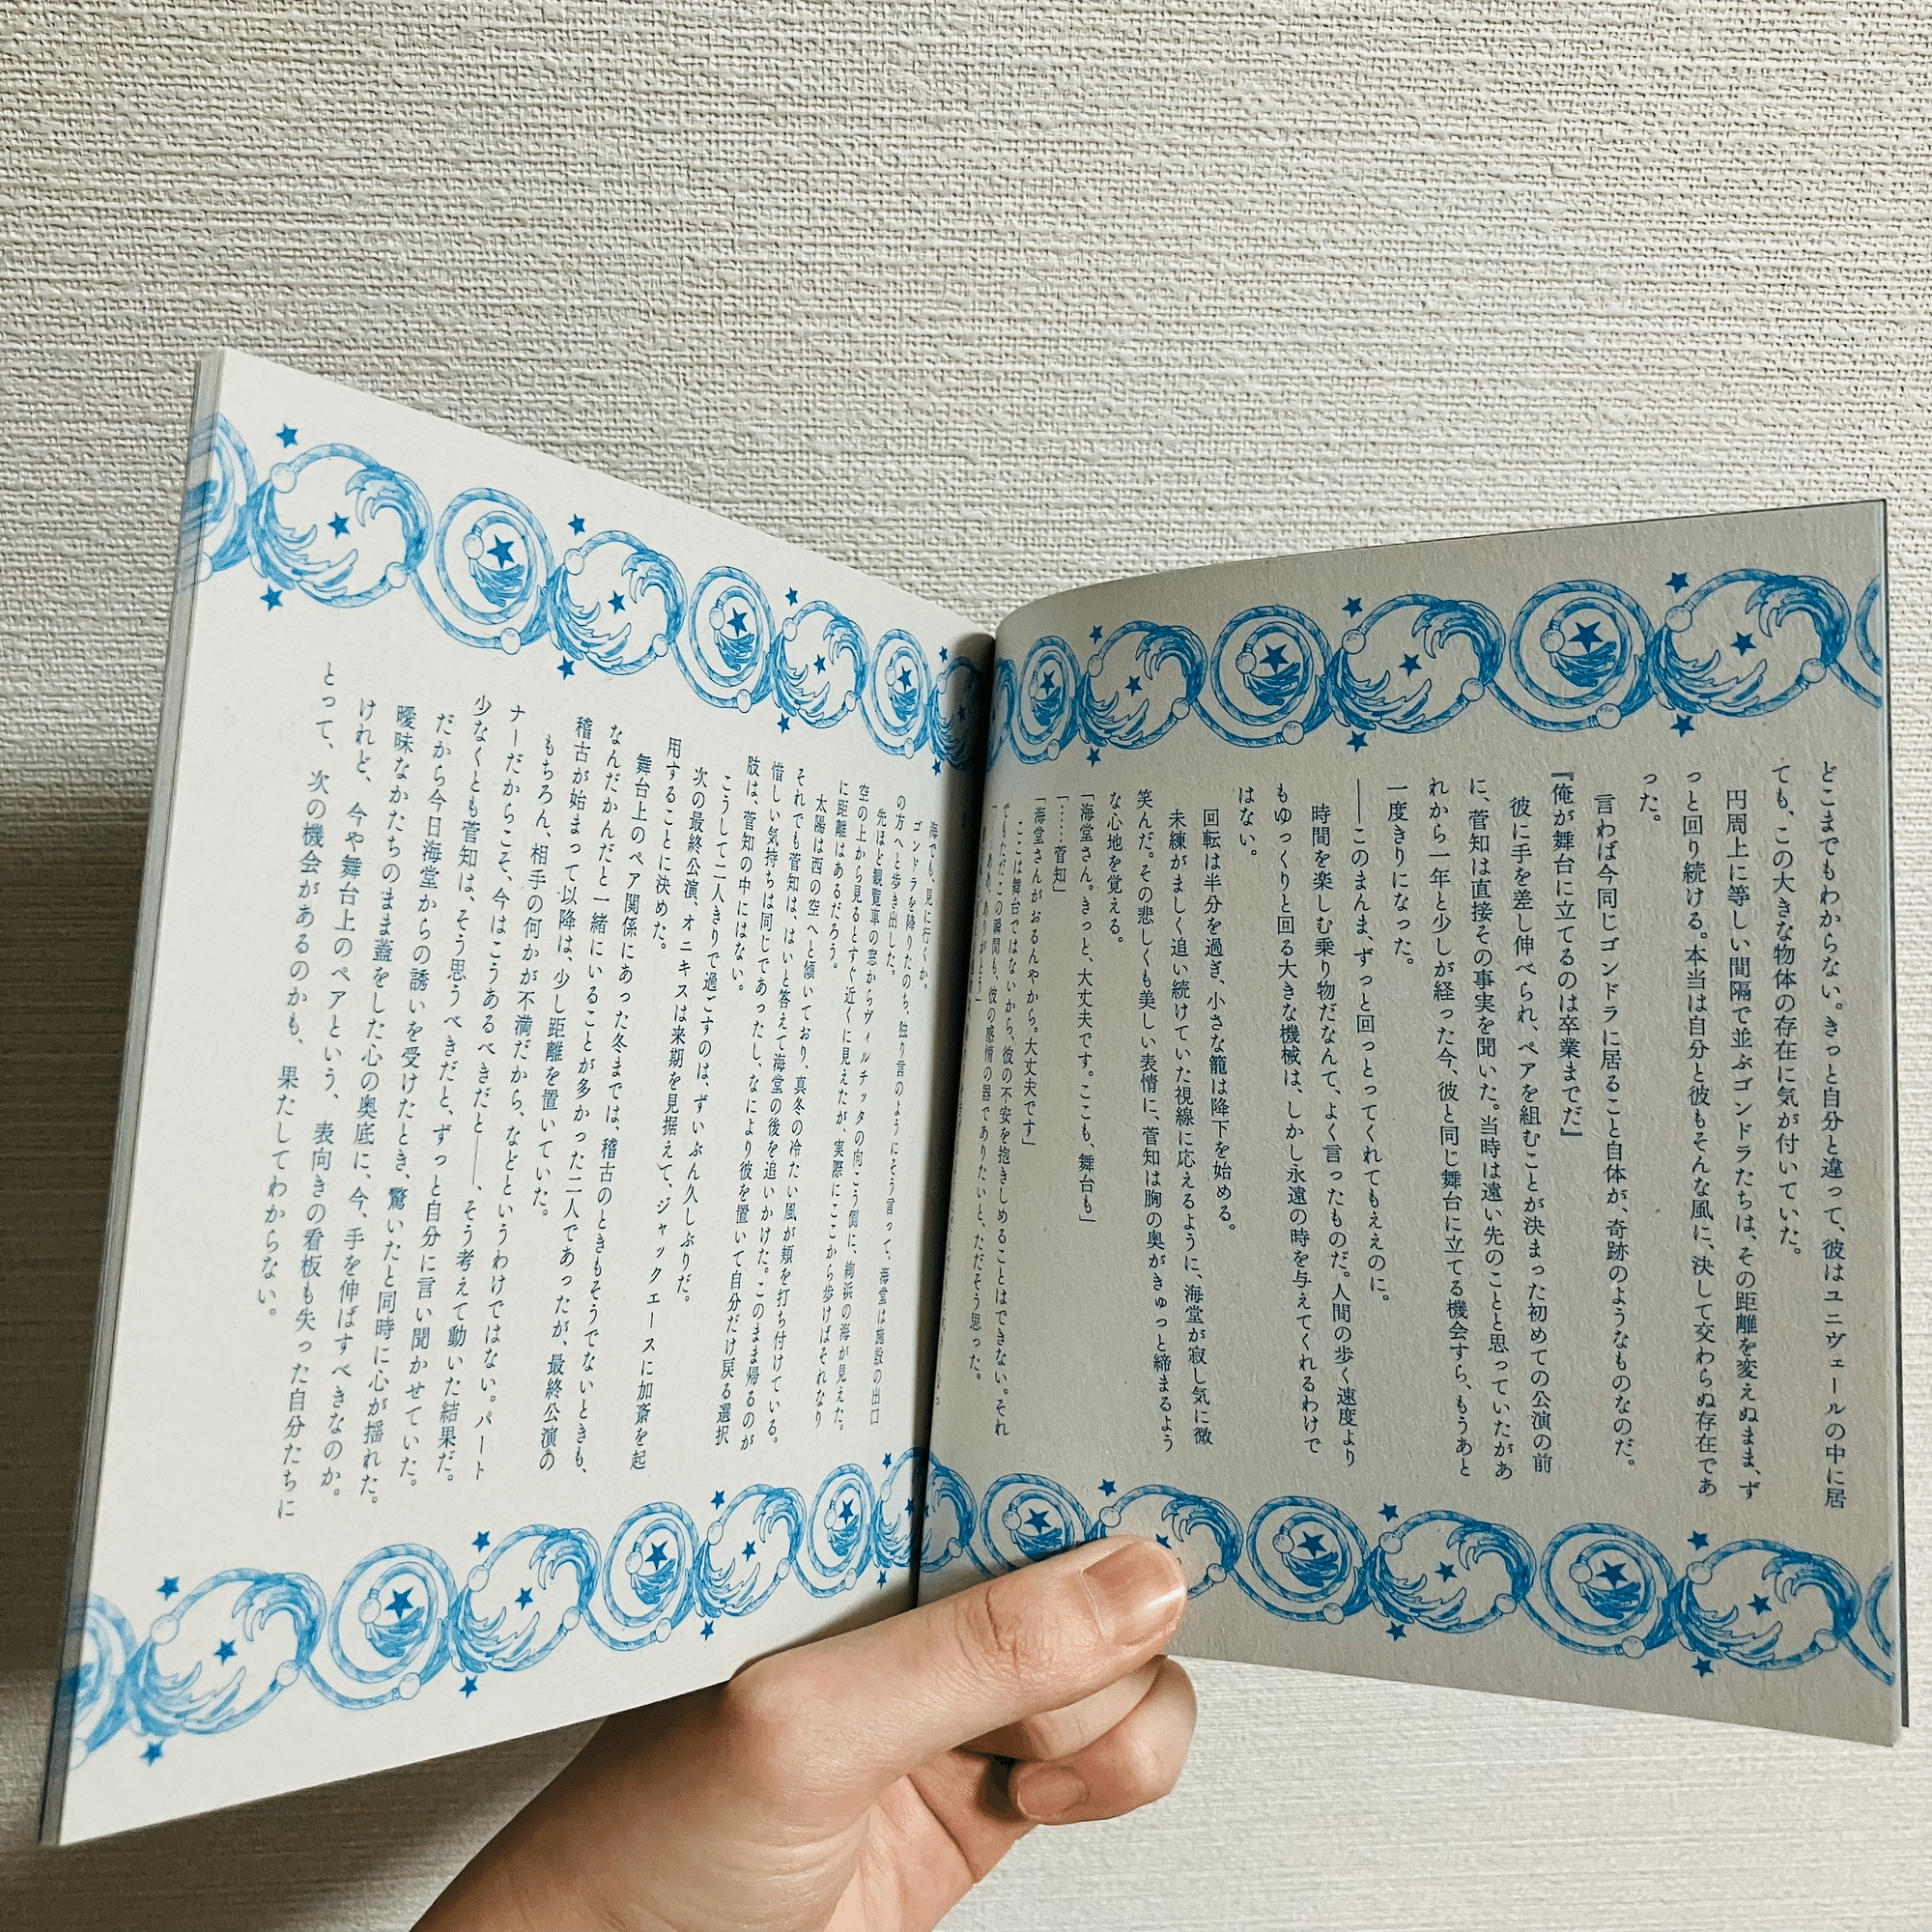 どこまでもわからない。きっと自分と違って、彼はユニヴェールの中に居
ても、この大きな物体の存在に気が付いていた。
円周上に等しい間隔で並ぶゴンドラたちは、その距離を変えぬまま、ず
っと回り続ける。本当は自分と彼もそんな風に、決して交わらぬ存在であ
った。
言わば今同じゴンドラに居ること自体が、奇跡のようなものなのだ。
『俺が舞台に立てるのは卒業までだ』
彼に手を差し伸べられ、ペアを組むことが決まった初めての公演の前
に、菅知は直接その事実を聞いた。当時は遠い先のことと思っていたがあ
れから一年と少しが経った今、彼と同じ舞台に立てる機会すら、もうあと
一度きりになった。
――このまんま、ずっと回っとってくれてもええのに。
時間を楽しむ乗り物だなんて、よく言ったものだ。人間の歩く速度より
もゆっくりと回る大きな機械は、しかし永遠の時を与えてくれるわけで
はない。
回転は半分を過ぎ、小さな籠は降下を始める。
未練がましく追い続けていた視線に応えるように、海堂が寂し気に微
笑んだ。その悲しくも美しい表情に、菅知は胸の奥がきゅっと締まるよう
な心地を覚える。
「海堂さん。きっと、大丈夫です。ここも、舞台も」
「……菅知」
「海堂さんがおるんやから。大丈夫です」
ここは舞台ではないから、彼の不安を抱きしめることはできない。それ
でもただこの瞬間も、彼の感情の器でありたいと、ただそう思った。
「ああ、ありがとう」
海でも、見に行くか。
ゴンドラを降りたのち、独り言のようにそう言って、海堂は施設の出口
の方へと歩き出した。
先ほど観覧車の窓からヴィルチッタの向こう側に、絢浜の海が見えた。
空の上から見るとすぐ近くに見えたが、実際にここから歩けばそれなり
に距離はあるだろう。
太陽は西の空へと傾いており、真冬の冷たい風が頬を打ち付けている。
それでも菅知は、はいと答えて海堂の後を追いかけた。このまま帰るのが
惜しい気持ちは同じであったし、なにより彼を置いて自分だけ戻る選択
肢は、菅知の中にはない。
こうして二人きりで過ごすのは、ずいぶん久しぶりだ。
次の最終公演、オニキスは来期を見据えて、ジャックエースに加斎を起
用することに決めた。
舞台上のペア関係にあった冬までは、稽古のときもそうでないときも、
なんだかんだと一緒にいることが多かった二人であったが、最終公演の
稽古が始まって以降は、少し距離を置いていた。
もちろん、相手の何かが不満だから、などというわけではない。パート
ナーだからこそ、今はこうあるべきだと――、そう考えて動いた結果だ。
少なくとも菅知は、そう思うべきだと、ずっと自分に言い聞かせていた。
だから今日海堂からの誘いを受けたとき、驚いたと同時に心が揺れた。
曖昧なかたちのまま蓋をした心の奥底に、今、手を伸ばすべきなのか。
けれど、今や舞台上のペアという、表向きの看板も失った自分たちに
とって、次の機会があるのかも、果たしてわからない。